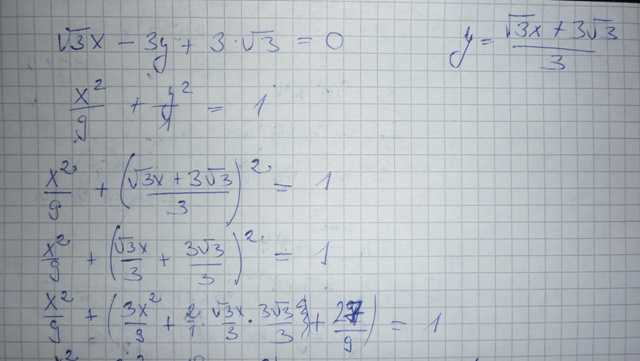 √3x - 3y + 3·√3 = 0
y = (√3x + 3√3)/3
x²/9 + y²/1 = 1
x²/9 + ((√3x + 3√3)/3)² = 1
x²/9 + (√3x/3 + 3√3/3)² = 1
x²/9 + (3x²/9 + 2/1 · √3x/3 · 3√3/3 + 27/9) = 1